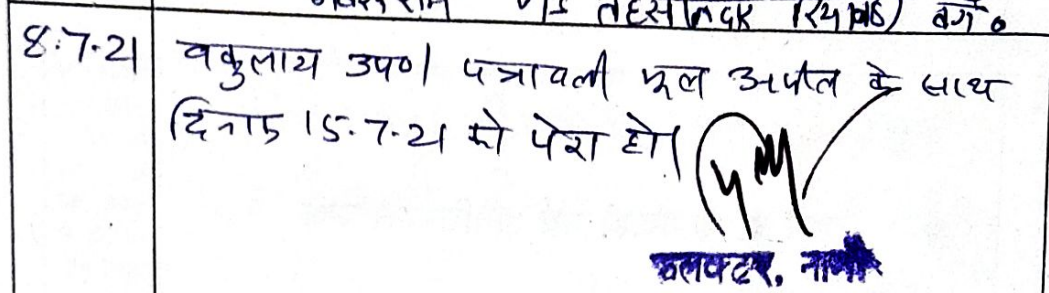 V/S तहसीलदार वगै०
8.7.21 वकुलाय उप०। पत्रावली मूल अपील के साथ
दिनांक 15.7.21 को पेश हो।
कलक्टर,